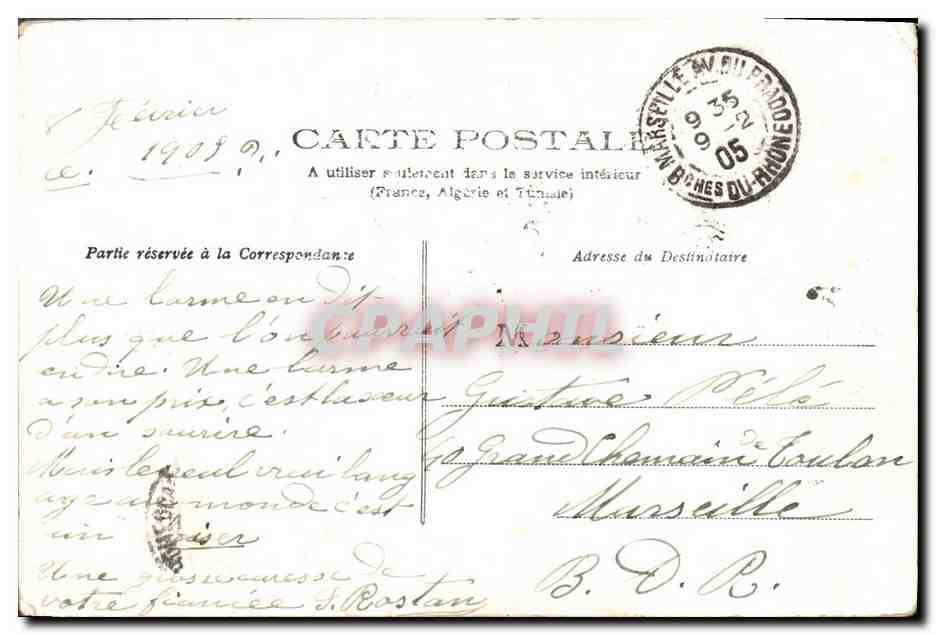 8 Février
ce. 1905
CARTE POSTALE
A utiliser seulement dans le service intérieur
(France, Algérie et Tunisie)
MARSEILLE AV. DU PRADO
9 35
9 -2
05
BCHES DU-RHONE
Partie réservée à la Correspondance
Adresse du Destinataire
Une larme en dit
plus que l'on
en dire. Une larme
a son prix, c'est la seur
d'un sourire.
Mais le seul vrai lang
age au monde c'est
un baiser
Une grosse caresse de
votre fiancée J. Rostan
Monsieur
Gustave Pélé
40 Grand Chemain de Toulon
Marseille
B. D. R.
CPAPHIL